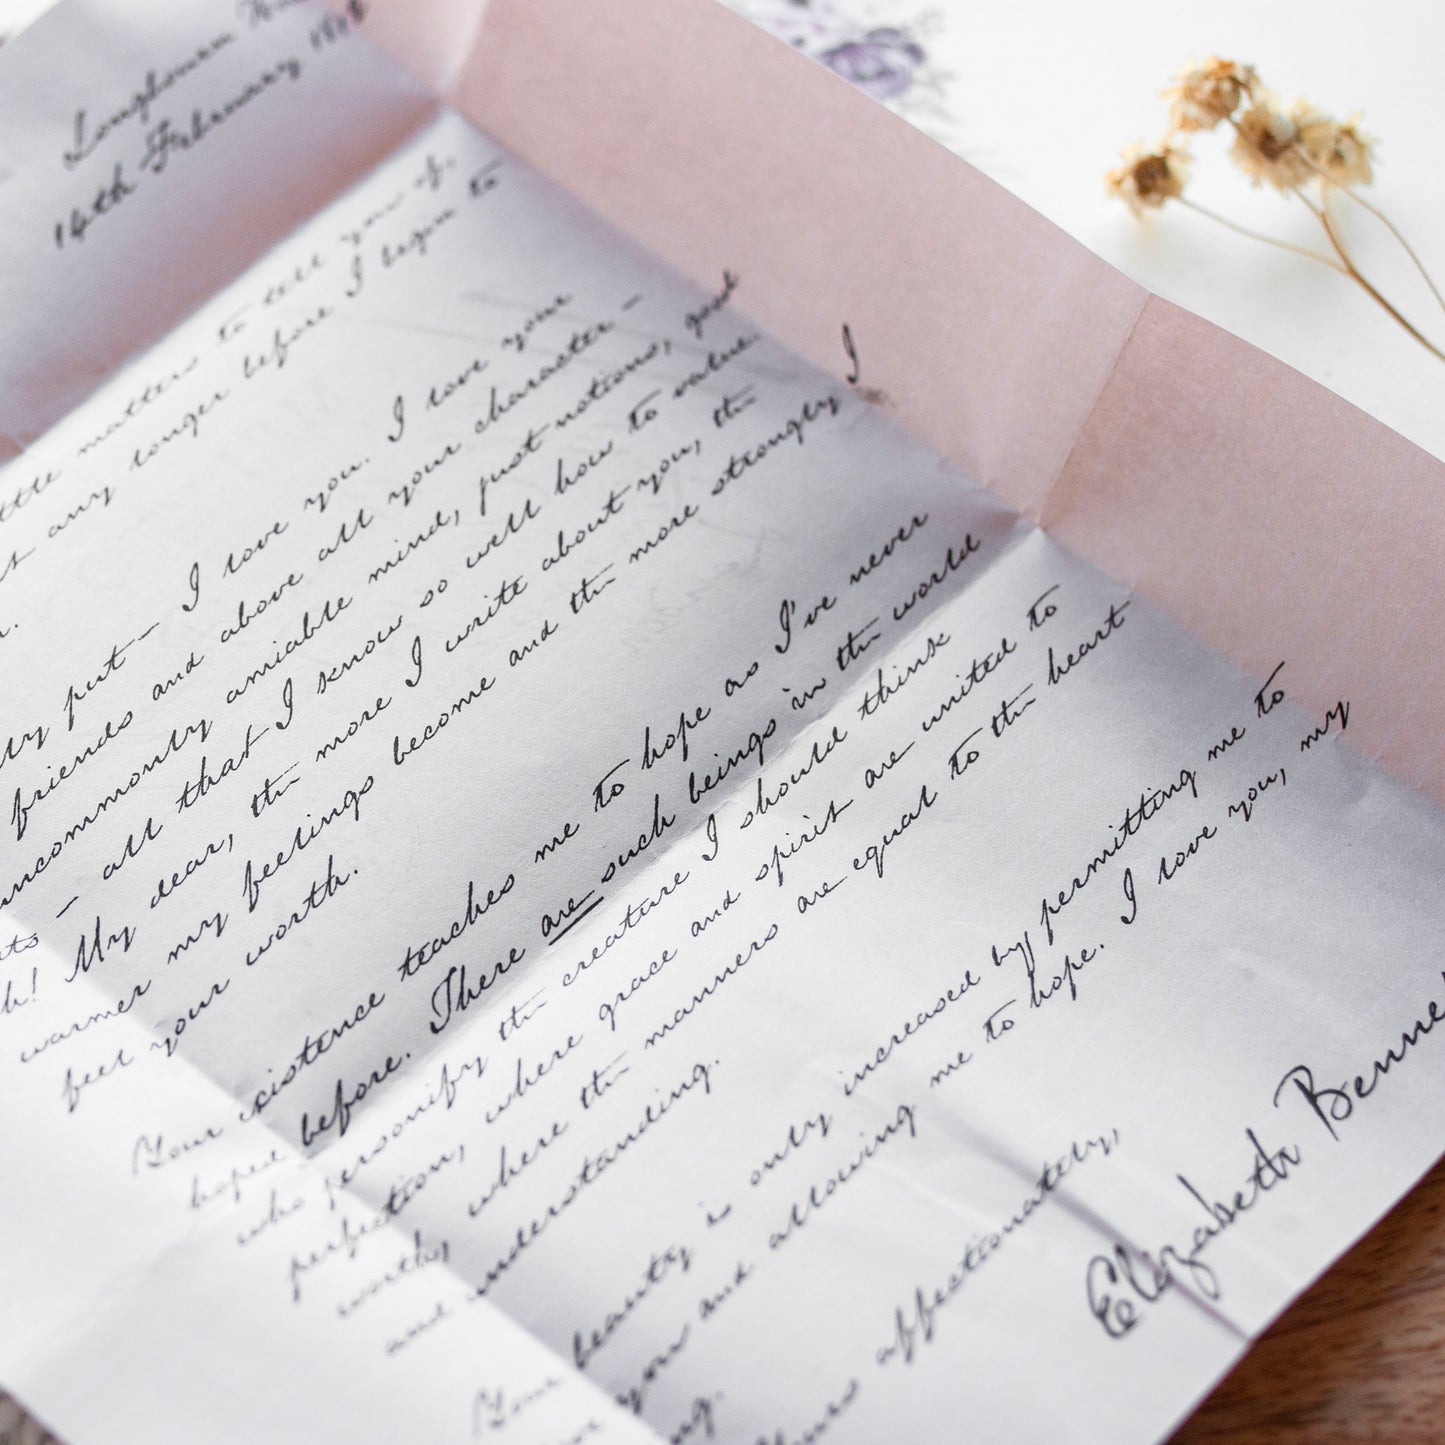 Longbourn
14th February
matters to tell you of,
any longer before I begin to
put - I love you. I love your
friends and above all your character -
uncommonly amiable mind, just notions, good
- all that I know so well how to value.
My dear, the more I write about you, the
warmer my feelings become and the more strongly I
feel your worth.
Your existence teaches me to hope as I've never
hoped before. There are such beings in the world
who personify the creature I should think
perfection, where grace and spirit are united to
worth, where the manners are equal to the heart
and understanding.
Your beauty is only increased by permitting me to
you and allowing me to hope. I love you, my
Yours affectionately,
Elizabeth Benne